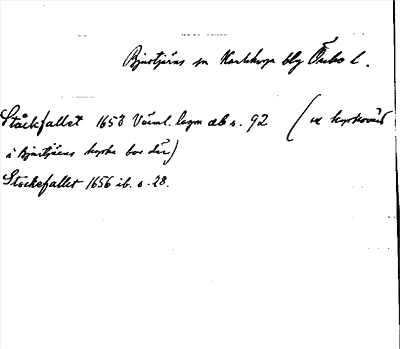 Bjurtjärns sn Karlskoga bg Örebro l.
Ståckfallet 1653 Värml. lagm db s. 92 (en kyrkovärd
i Bjurtjärns kyrka bor där)
Stockefallet 1656 ib. s. 28.